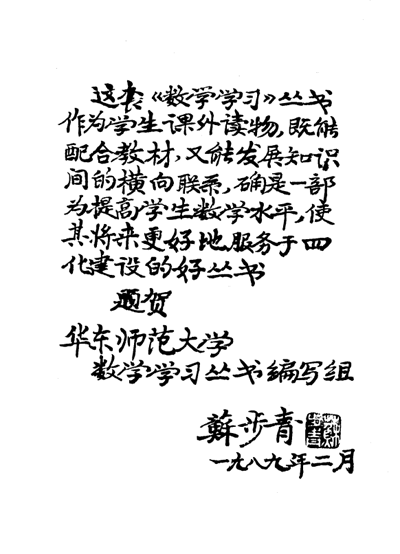 这套《数学学习》丛书
作为学生课外读物,既能
配合教材,又能发展知识
间的横向联系,确是一部
为提高学生数学水平,使
其将来更好地服务于四
化建设的好丛书
题贺
华东师范大学
数学学习丛书编写组
蘇步青
一九八九年二月